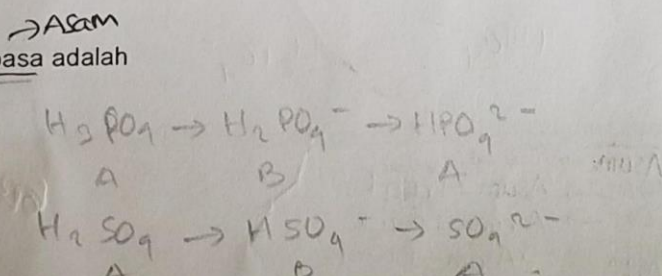 → Asam
basa adalah
H₃PO₄ → H₂PO₄⁻ → HPO₄²⁻
A B A
H₂SO₄ → HSO₄⁻ → SO₄²⁻
A B A